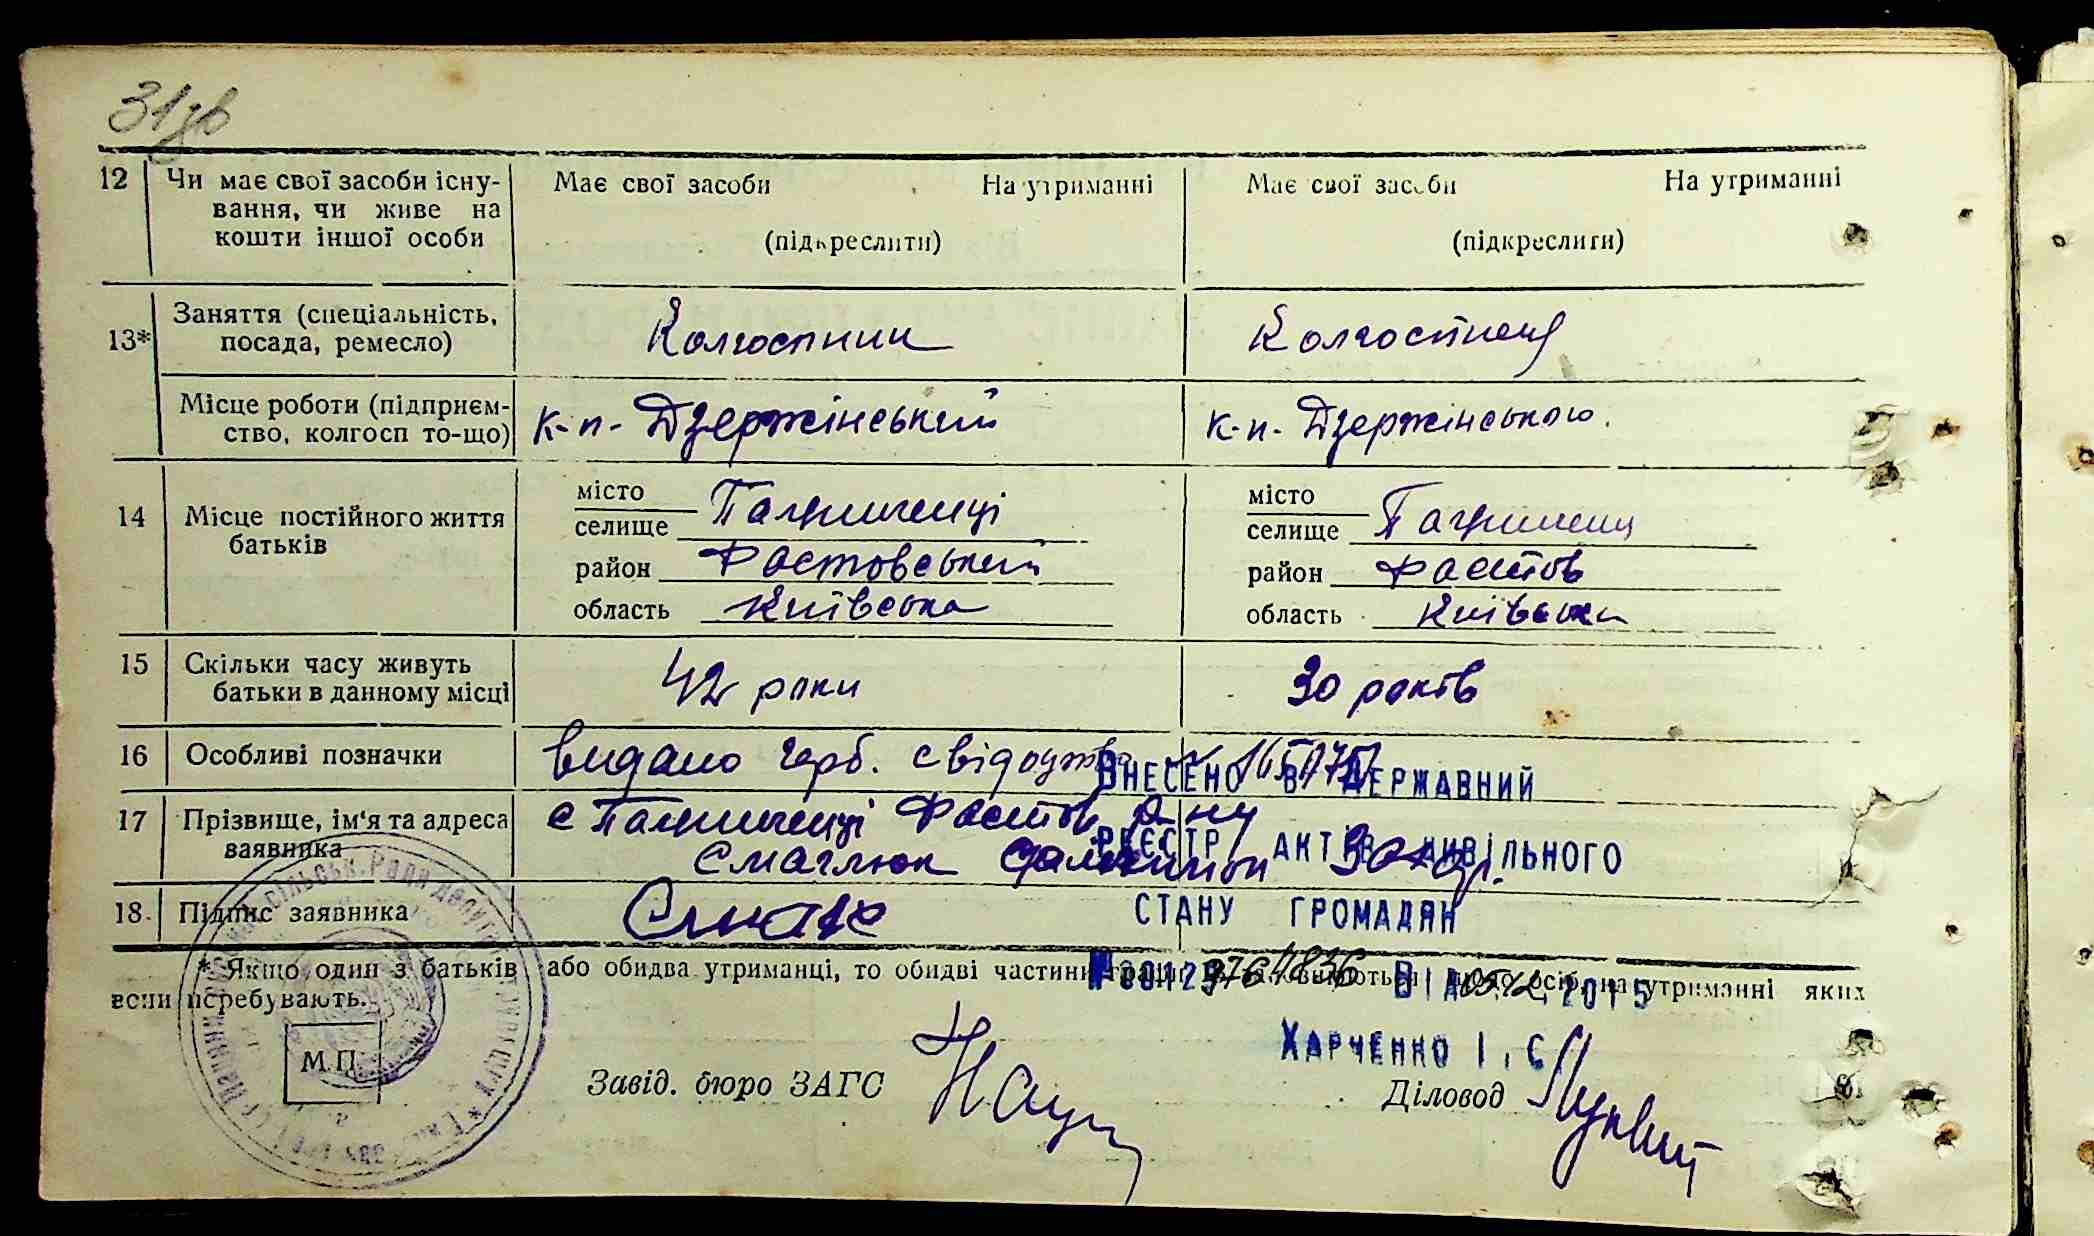 31зв
12 Чи має свої засоби існу- Має свої засоби На утриманні Має свої засоби На утриманні
вання, чи живе на
кошти іншої особи (підкреслити) (підкреслити)
Заняття (спеціальність,
13* посада, ремесло) Колгоспник Колгоспниця
Місце роботи (підприєм- к-п. Дзержінський к-п. Дзержінського.
ство, колгосп то-що)
місто місто
14 Місце постійного життя селище Пагриченці селище
батьків район Фастовський район Фастов
область Київська область Київська
15 Скільки часу живуть 42 роки 30 років
батьки в данному місці
16 Особливі позначки видано герб. свідоцтво
ВНЕСЕНО В ДЕРЖАВНИЙ
17 Прізвище, ім'я та адреса с Фастов р-ну
заявника Смаглюк
РЕЄСТР АКТІВ ЦИВІЛЬНОГО
18. Підпис заявника
СТАНУ ГРОМАДЯН
* Якщо один з батьків або обидва утриманці, то обидві частини осіб, на утриманні яких
вони перебувають.
№00129764836 ВІД 05.12.2015
ХАРЧЕНКО І.С.
М.П.
Завід. бюро ЗАГС Діловод